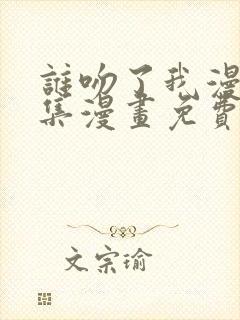 誰吻了我漫
集漫畫免費
文宗瑜